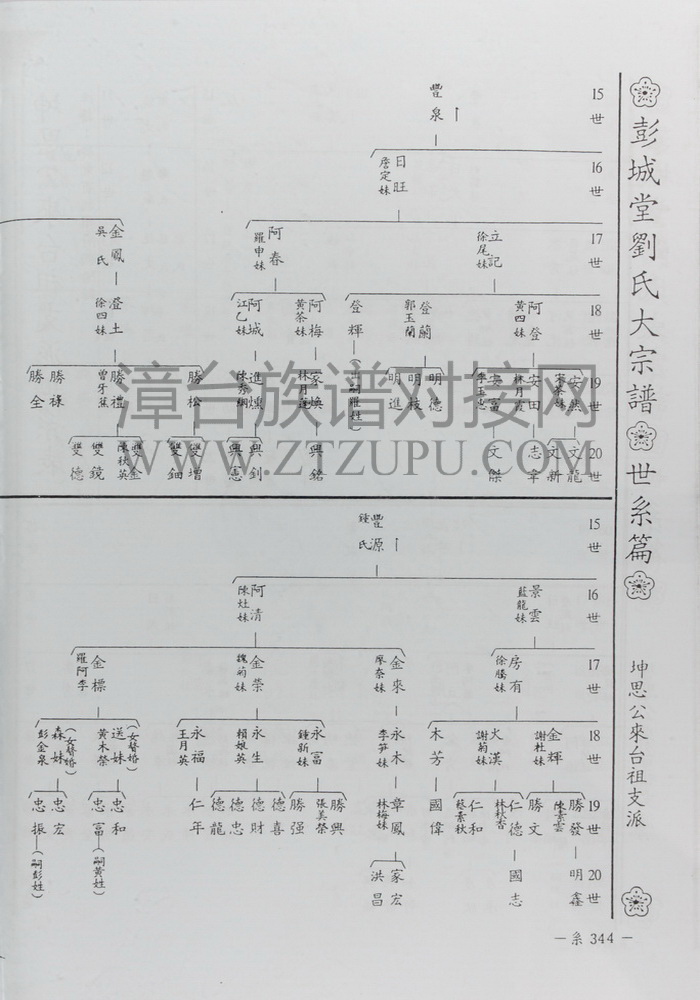 彭城堂劉氏大宗譜
世系篇
坤思公來台祖支派
15世
豐泉
16世
日旺
詹定妹
17世
立記
徐尾妹
阿春
羅申妹
金鳳
吳氏
18世
阿登
黃四妹
登蘭
郭玉蘭
登輝
(出嗣羅姓)
阿梅
黃茶妹
阿城
江乙妹
澄土
徐四妹
19世
安然
安田
林月霞
安富
李玉忠
明德
明枝
明進
家煥
林月蓮
進爐
陳秀綢
勝松
勝禮
曾牙蕉
勝祿
勝全
20世
文龍
文新
志韋
文傑
興銘
興釗
興憲
雙增
雙鈿
雙金
陳秋英
雙鏡
雙德
15世
豐源
鍾氏
16世
景雲
藍龍妹
阿清
陳灶妹
17世
房有
徐騰妹
金來
廖奈妹
金榮
魏苟妹
金標
羅阿李
18世
金輝
謝杜妹
火漢
謝菊妹
木芳
永木
李笋妹
永富
鍾新妹
永生
賴娘英
永福
王月英
(女瞽婚)
送妹
黃木榮
(女瞽婚)
森妹
彭金泉
19世
勝發
陳素雲
勝文
仁德
林秋杏
仁和
蔡素秋
國偉
章鳳
林梅妹
勝興
張美榮
勝強
德喜
德財
德忠
德龍
仁年
忠和
忠富
(嗣黃姓)
忠宏
忠振
(嗣彭姓)
20世
明鑫
國志
家宏
洪昌
— 系 344 —
漳台族谱对接网
WWW.ZTZUPU.COM